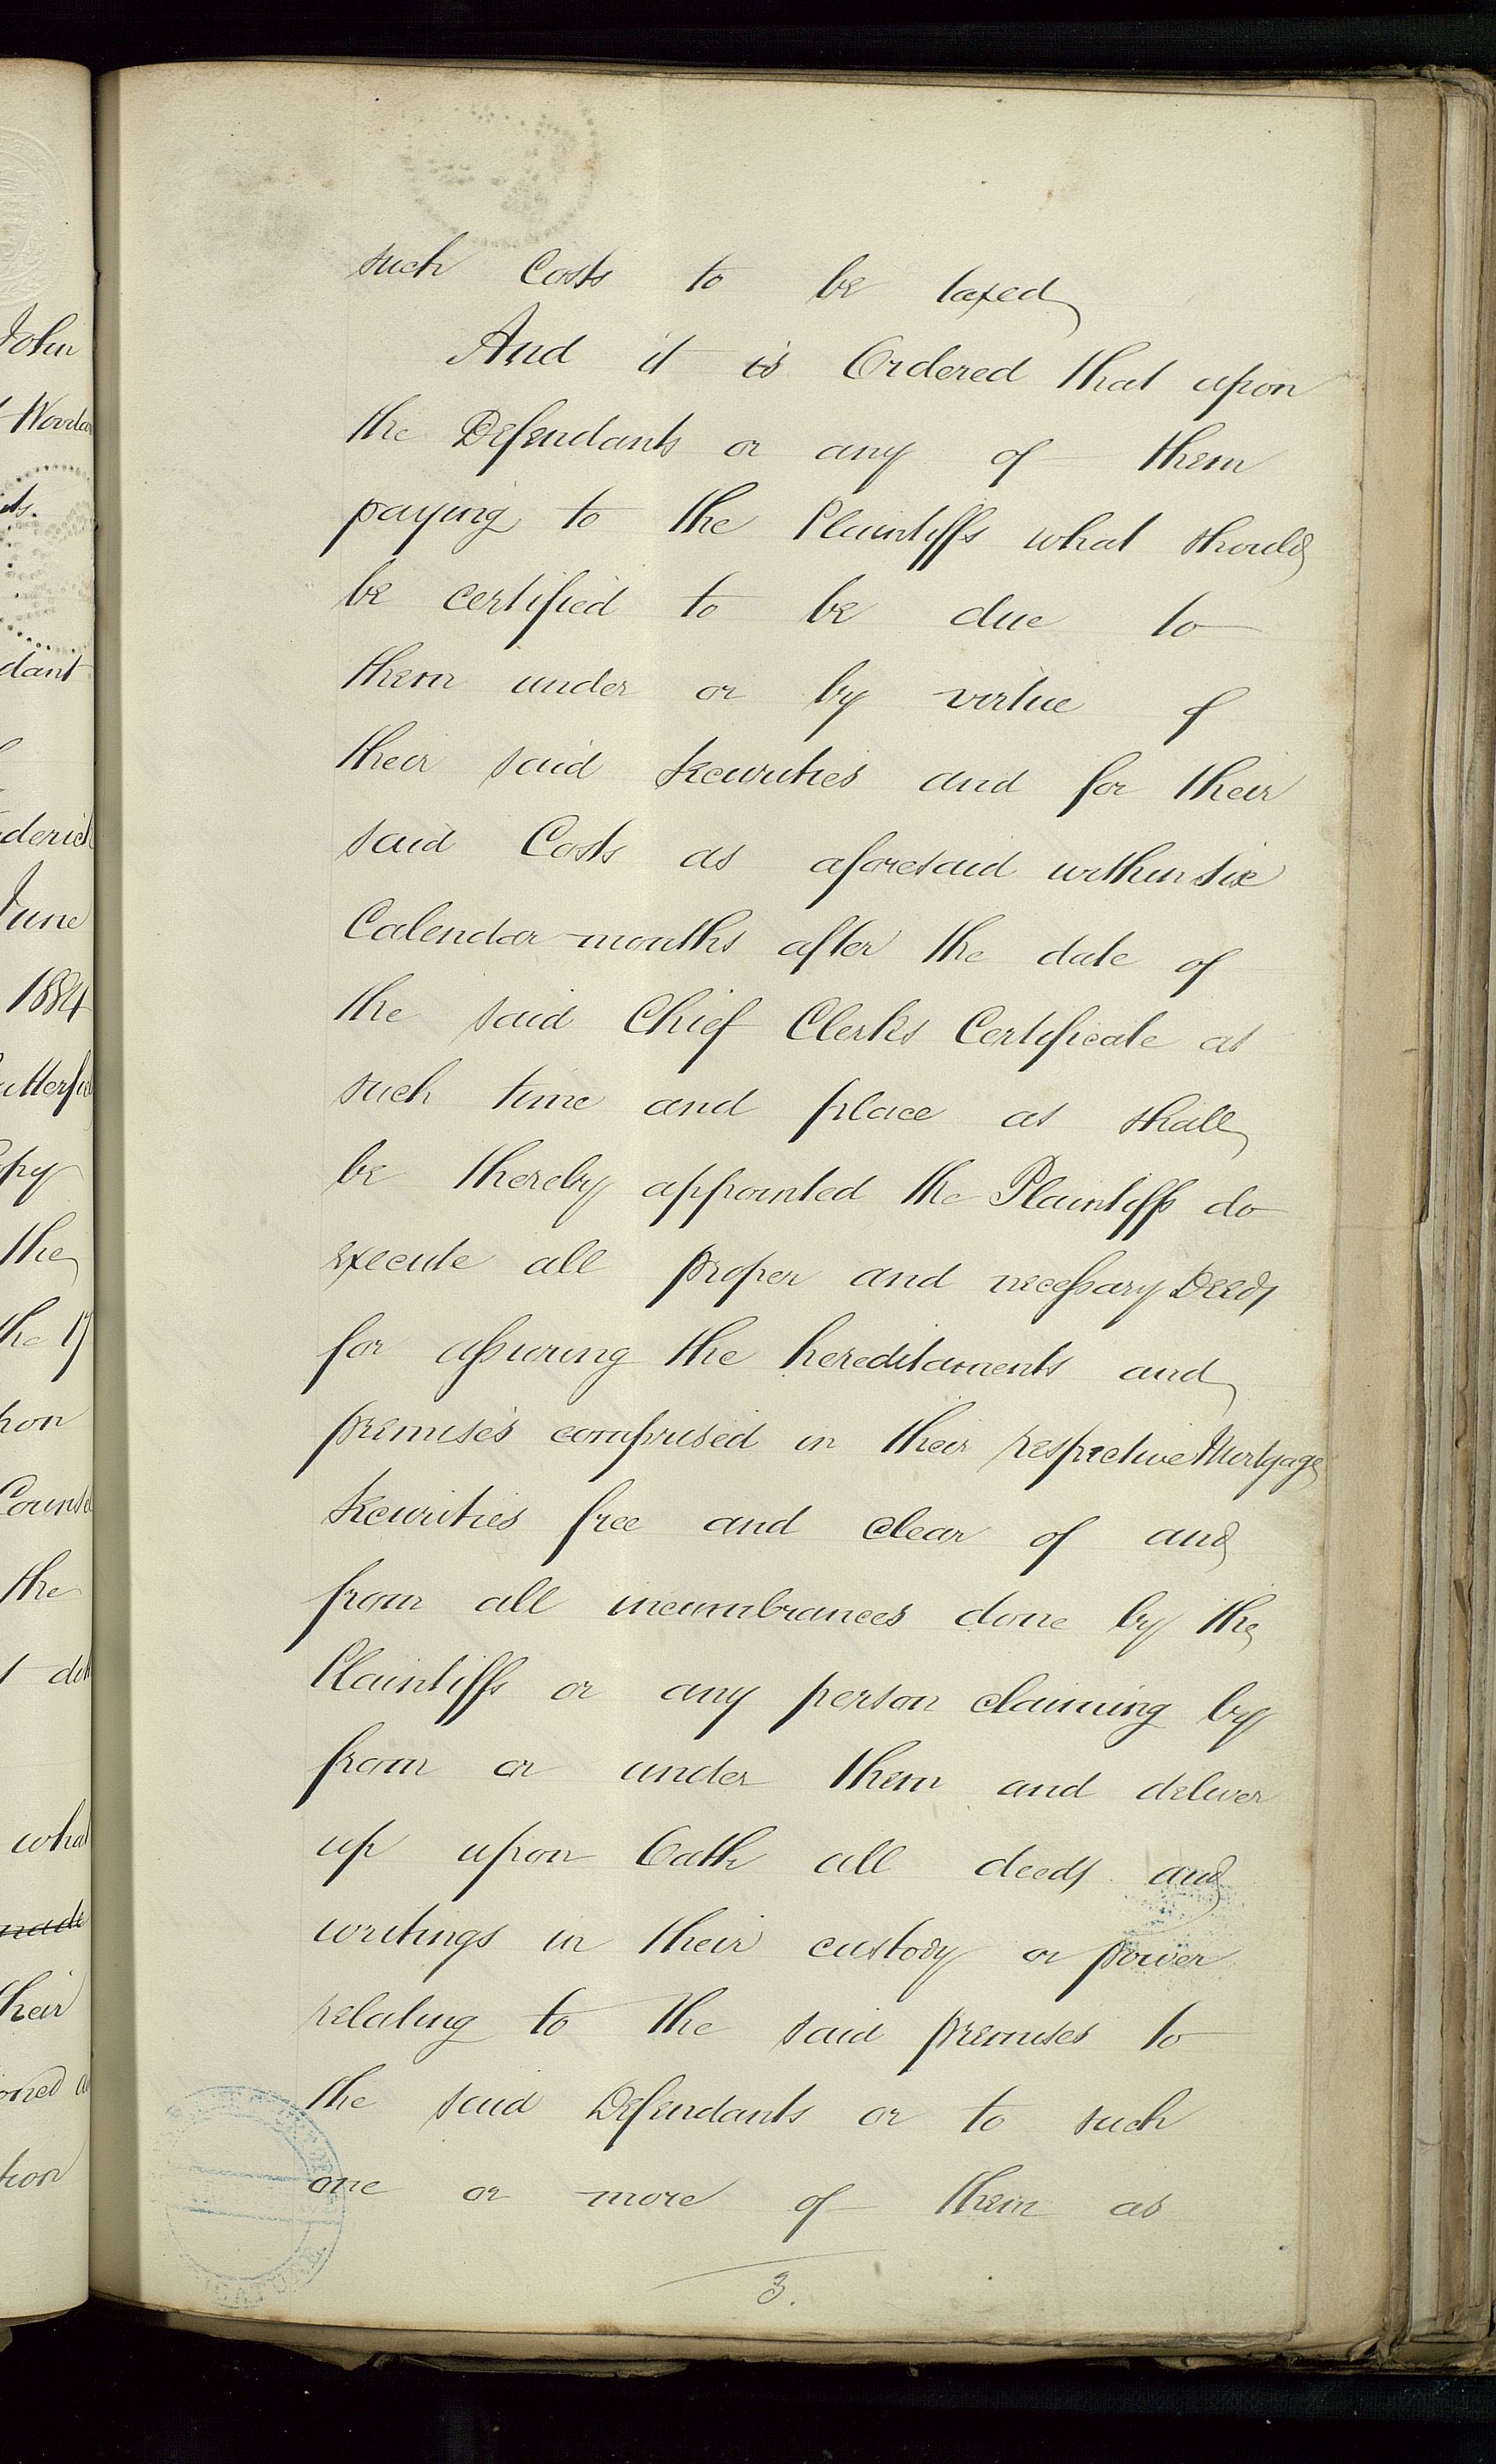 such Costs to be taxed
And it is Ordered that upon
the Defendants or any of them
paying to the Plaintiffs what should
be certified to be due to
them under or by virtue of
their said Securities and for their
said Costs as aforesaid within six
Calendar months after the date of
the said Chief Clerks Certificate at
such time and place as shall
be thereby appointed the Plaintiffs do
execute all proper and necessary Deeds
for assuring the hereditaments and
premises comprised in their respective Mortgage
Securities free and clear of and
from all incumbrances done by the
Plaintiffs or any person claiming by
from or under them and deliver
up upon Oath all deeds and
writings in their custody or power
relating to the said premises to
the said Defendants or to such
one or more of them as
3.
John
dant
June
1884
the
the 17
the
what
made
their